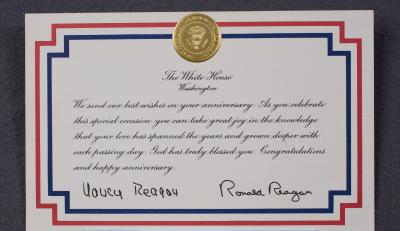 The White House
Washington
We send our best wishes on your anniversary. As you celebrate
this special occasion you can take great joy in the knowledge
that your love has spanned the years and grown deeper with
each passing day. God has truly blessed you. Congratulations
and happy anniversary.
Nancy Reagan Ronald Reagan